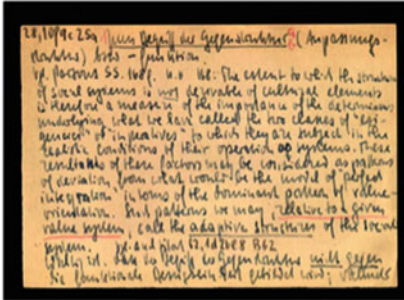 Zum Begriff der Gegenstruktur (Anpassungs-
struktur) bzw. -funktion.
vgl. Parsons SS. 168: The extent to which the structure
of social systems is not derivable of cultural elements
is therefore a measure of the importance of the determinants
underlying what we have called the two classes of "exi-
gencies" or "imperatives" to which they are subject in the
realistic conditions of their operation as systems. These
resultants of these factors may be considered as patterns
of deviation from what would be the model of "perfect
integration" in terms of the dominant pattern of value-
orientation. Such patterns we may, relative to a given
value system, call the adaptive structures of the social
system.
der Begriff der Gegenstruktur nicht gegen
die funktionale gebildet wird,